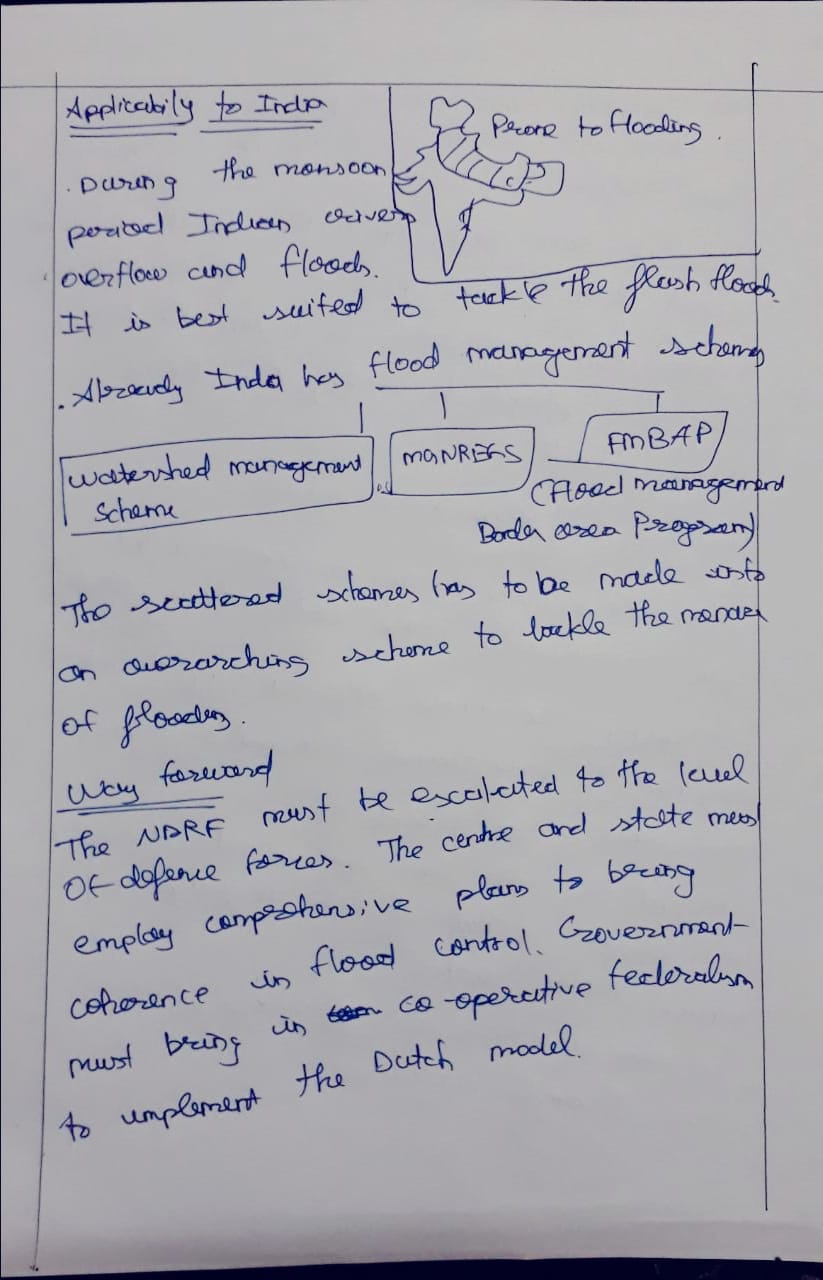 Applicabily to India
Prone to flooding.
. During the monsoon
period Indian rivers
overflow and floods.
It is best suited to tackle the flash floods.
. Already India has flood management schemes
Watershed management
Scheme
MGNREGS
FMBAP
(Flood management
Border area Program)
The scattered schemes has to be made into
an overarching scheme to tackle the menace
of flooding.
Way forward
The NDRF must be escalated to the level
of defence forces. The centre and state must
employ comprehensive plans to bring
coherence in flood control. Government
must bring in co-operative federalism
to implement the Dutch model.